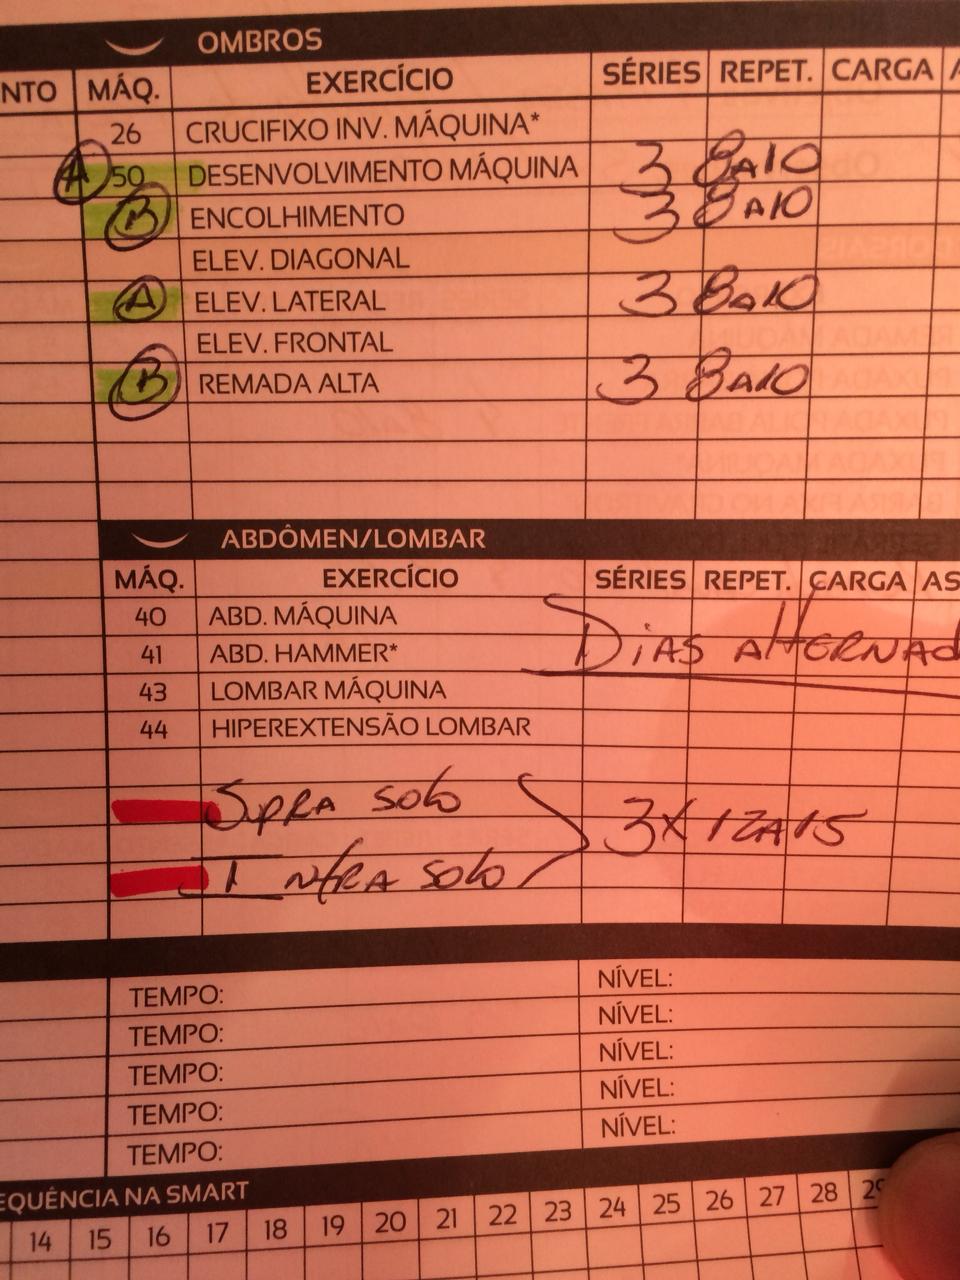 OMBROS
NTO MÁQ. EXERCÍCIO SÉRIES REPET. CARGA A
26 CRUCIFIXO INV. MÁQUINA*
A 50 DESENVOLVIMENTO MÁQUINA 3 8 A 10
B ENCOLHIMENTO 3 8 A 10
ELEV. DIAGONAL
A ELEV. LATERAL 3 8 A 10
ELEV. FRONTAL
B REMADA ALTA 3 8 A 10
ABDÔMEN/LOMBAR
MÁQ. EXERCÍCIO SÉRIES REPET. CARGA AS
40 ABD. MÁQUINA
41 ABD. HAMMER* DIAS ALTERNAD
43 LOMBAR MÁQUINA
44 HIPEREXTENSÃO LOMBAR
SUPRA SOLO 3X 12 A 15
INFRA SOLO
TEMPO: NÍVEL:
TEMPO: NÍVEL:
TEMPO: NÍVEL:
TEMPO: NÍVEL:
TEMPO: NÍVEL:
EQUÊNCIA NA SMART
14 15 16 17 18 19 20 21 22 23 24 25 26 27 28 29